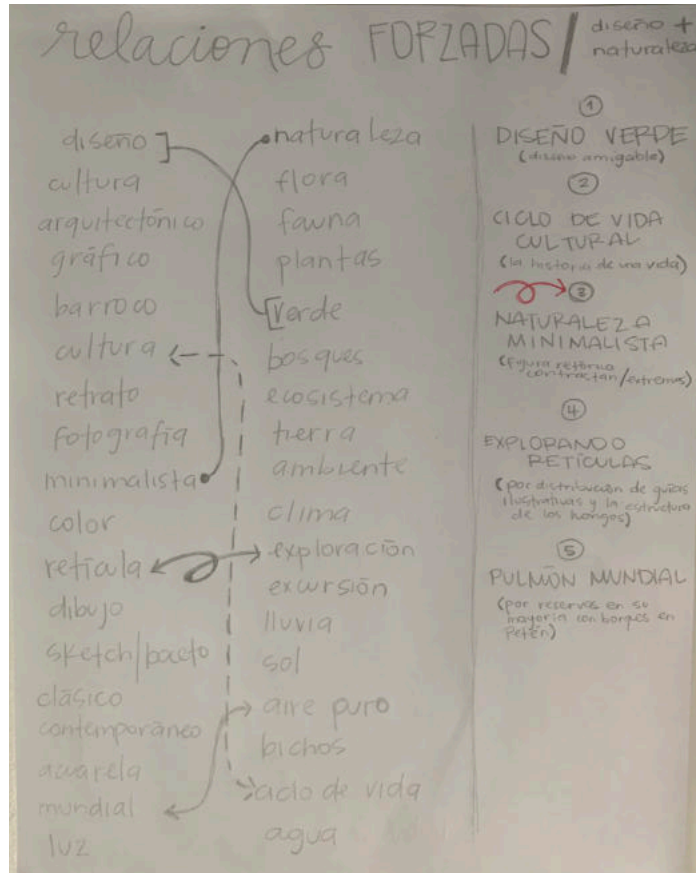 relaciones FORZADAS / diseño + naturaleza
diseño
cultura
arquitectónico
gráfico
barroco
cultura
retrato
fotografía
minimalista
color
retícula
dibujo
sketch/boceto
clásico
contemporáneo
acuarela
mundial
luz
naturaleza
flora
fauna
plantas
verde
bosques
ecosistema
tierra
ambiente
clima
exploración
excursión
lluvia
sol
aire puro
bichos
ciclo de vida
agua
1
DISEÑO VERDE
(diseño amigable)
2
CICLO DE VIDA
CULTURAL
(la historia de una vida)
3
NATURALEZA
MINIMALISTA
(figura retórica
contrastan/extremos)
4
EXPLORANDO
RETÍCULAS
(por distribución de guías
ilustrativas y la estructura
de los hongos)
5
PULMÓN MUNDIAL
(por reservas en su
mayoría con bosques en
Petén)